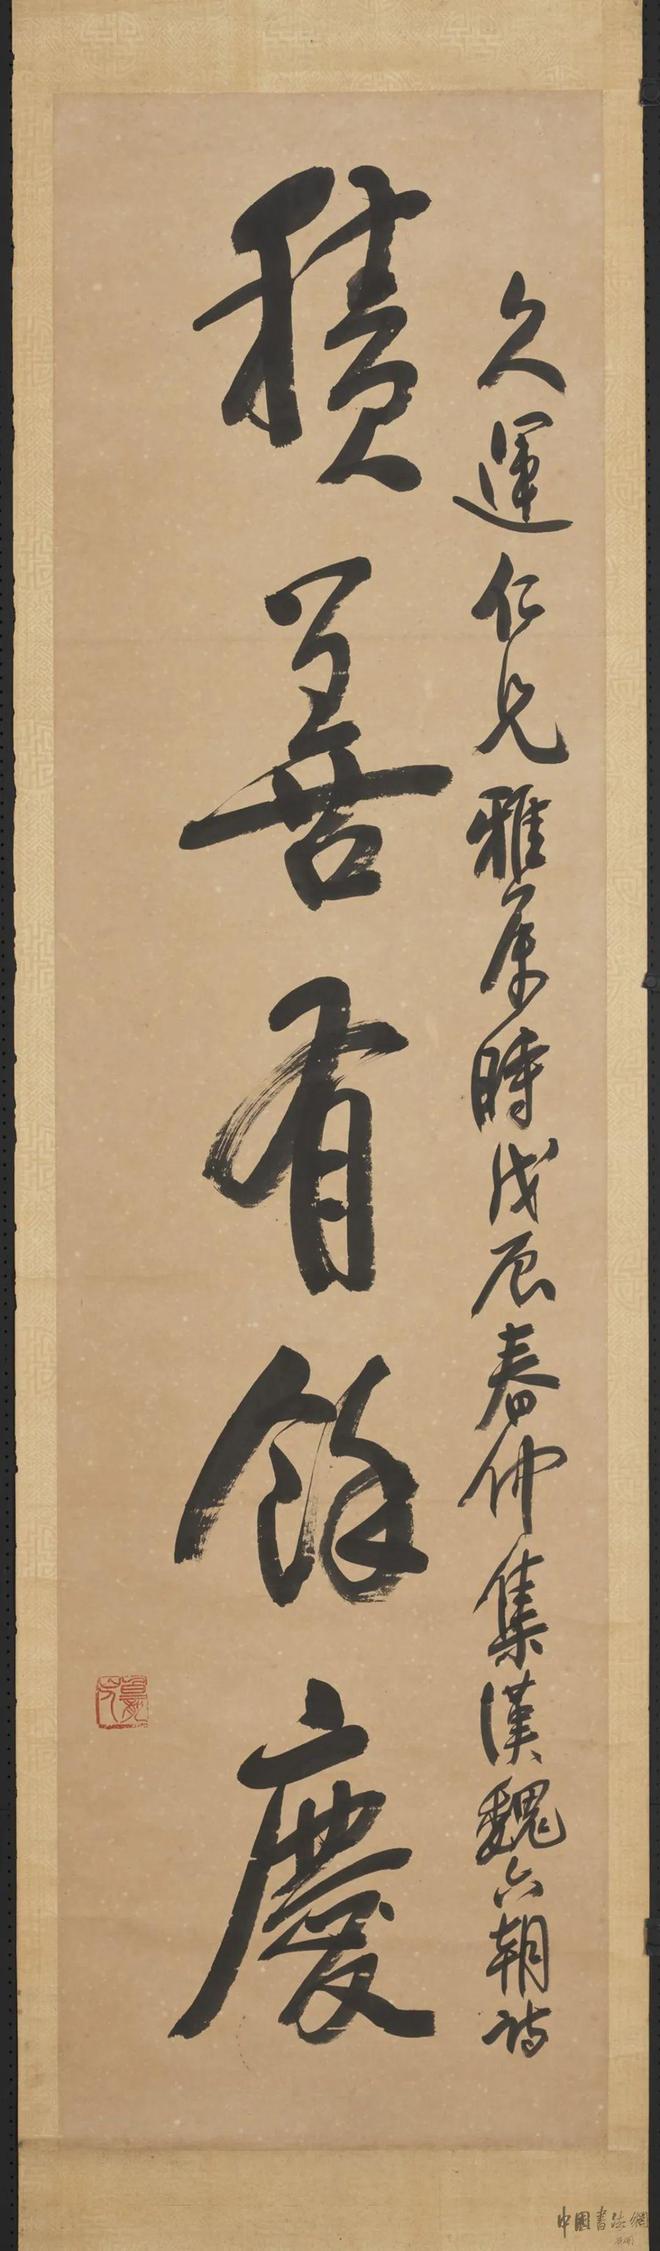 久運仁兄雅屬時戊辰春仲集漢魏六朝詩
積善有餘慶
中國書法網